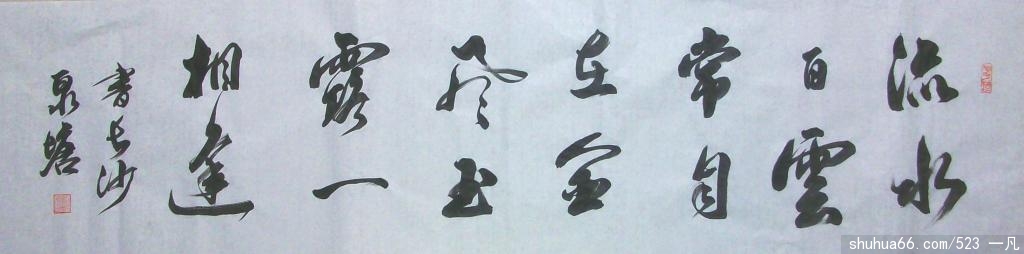 流水
白雲
常自
在金
風玉
露一
相逢
書长沙
泉塘
shuhua66.com/523 一凡